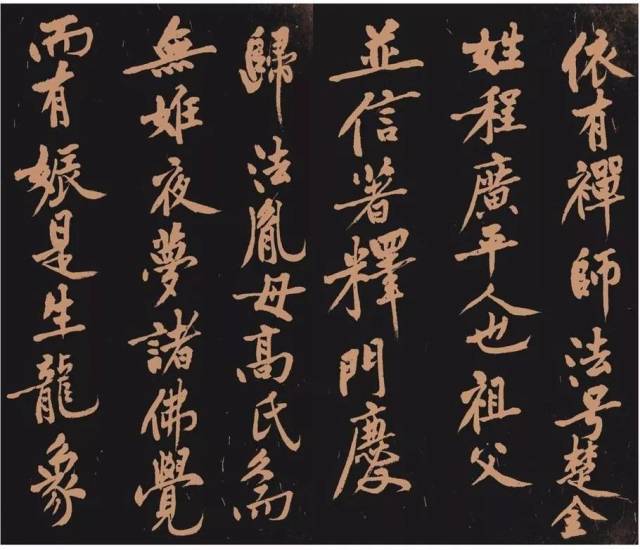 依有禪師法号楚金
姓程廣平人也祖父
並信著釋門慶
歸法胤母高氏久而
無姙夜夢諸佛覺
而有娠是生龍象